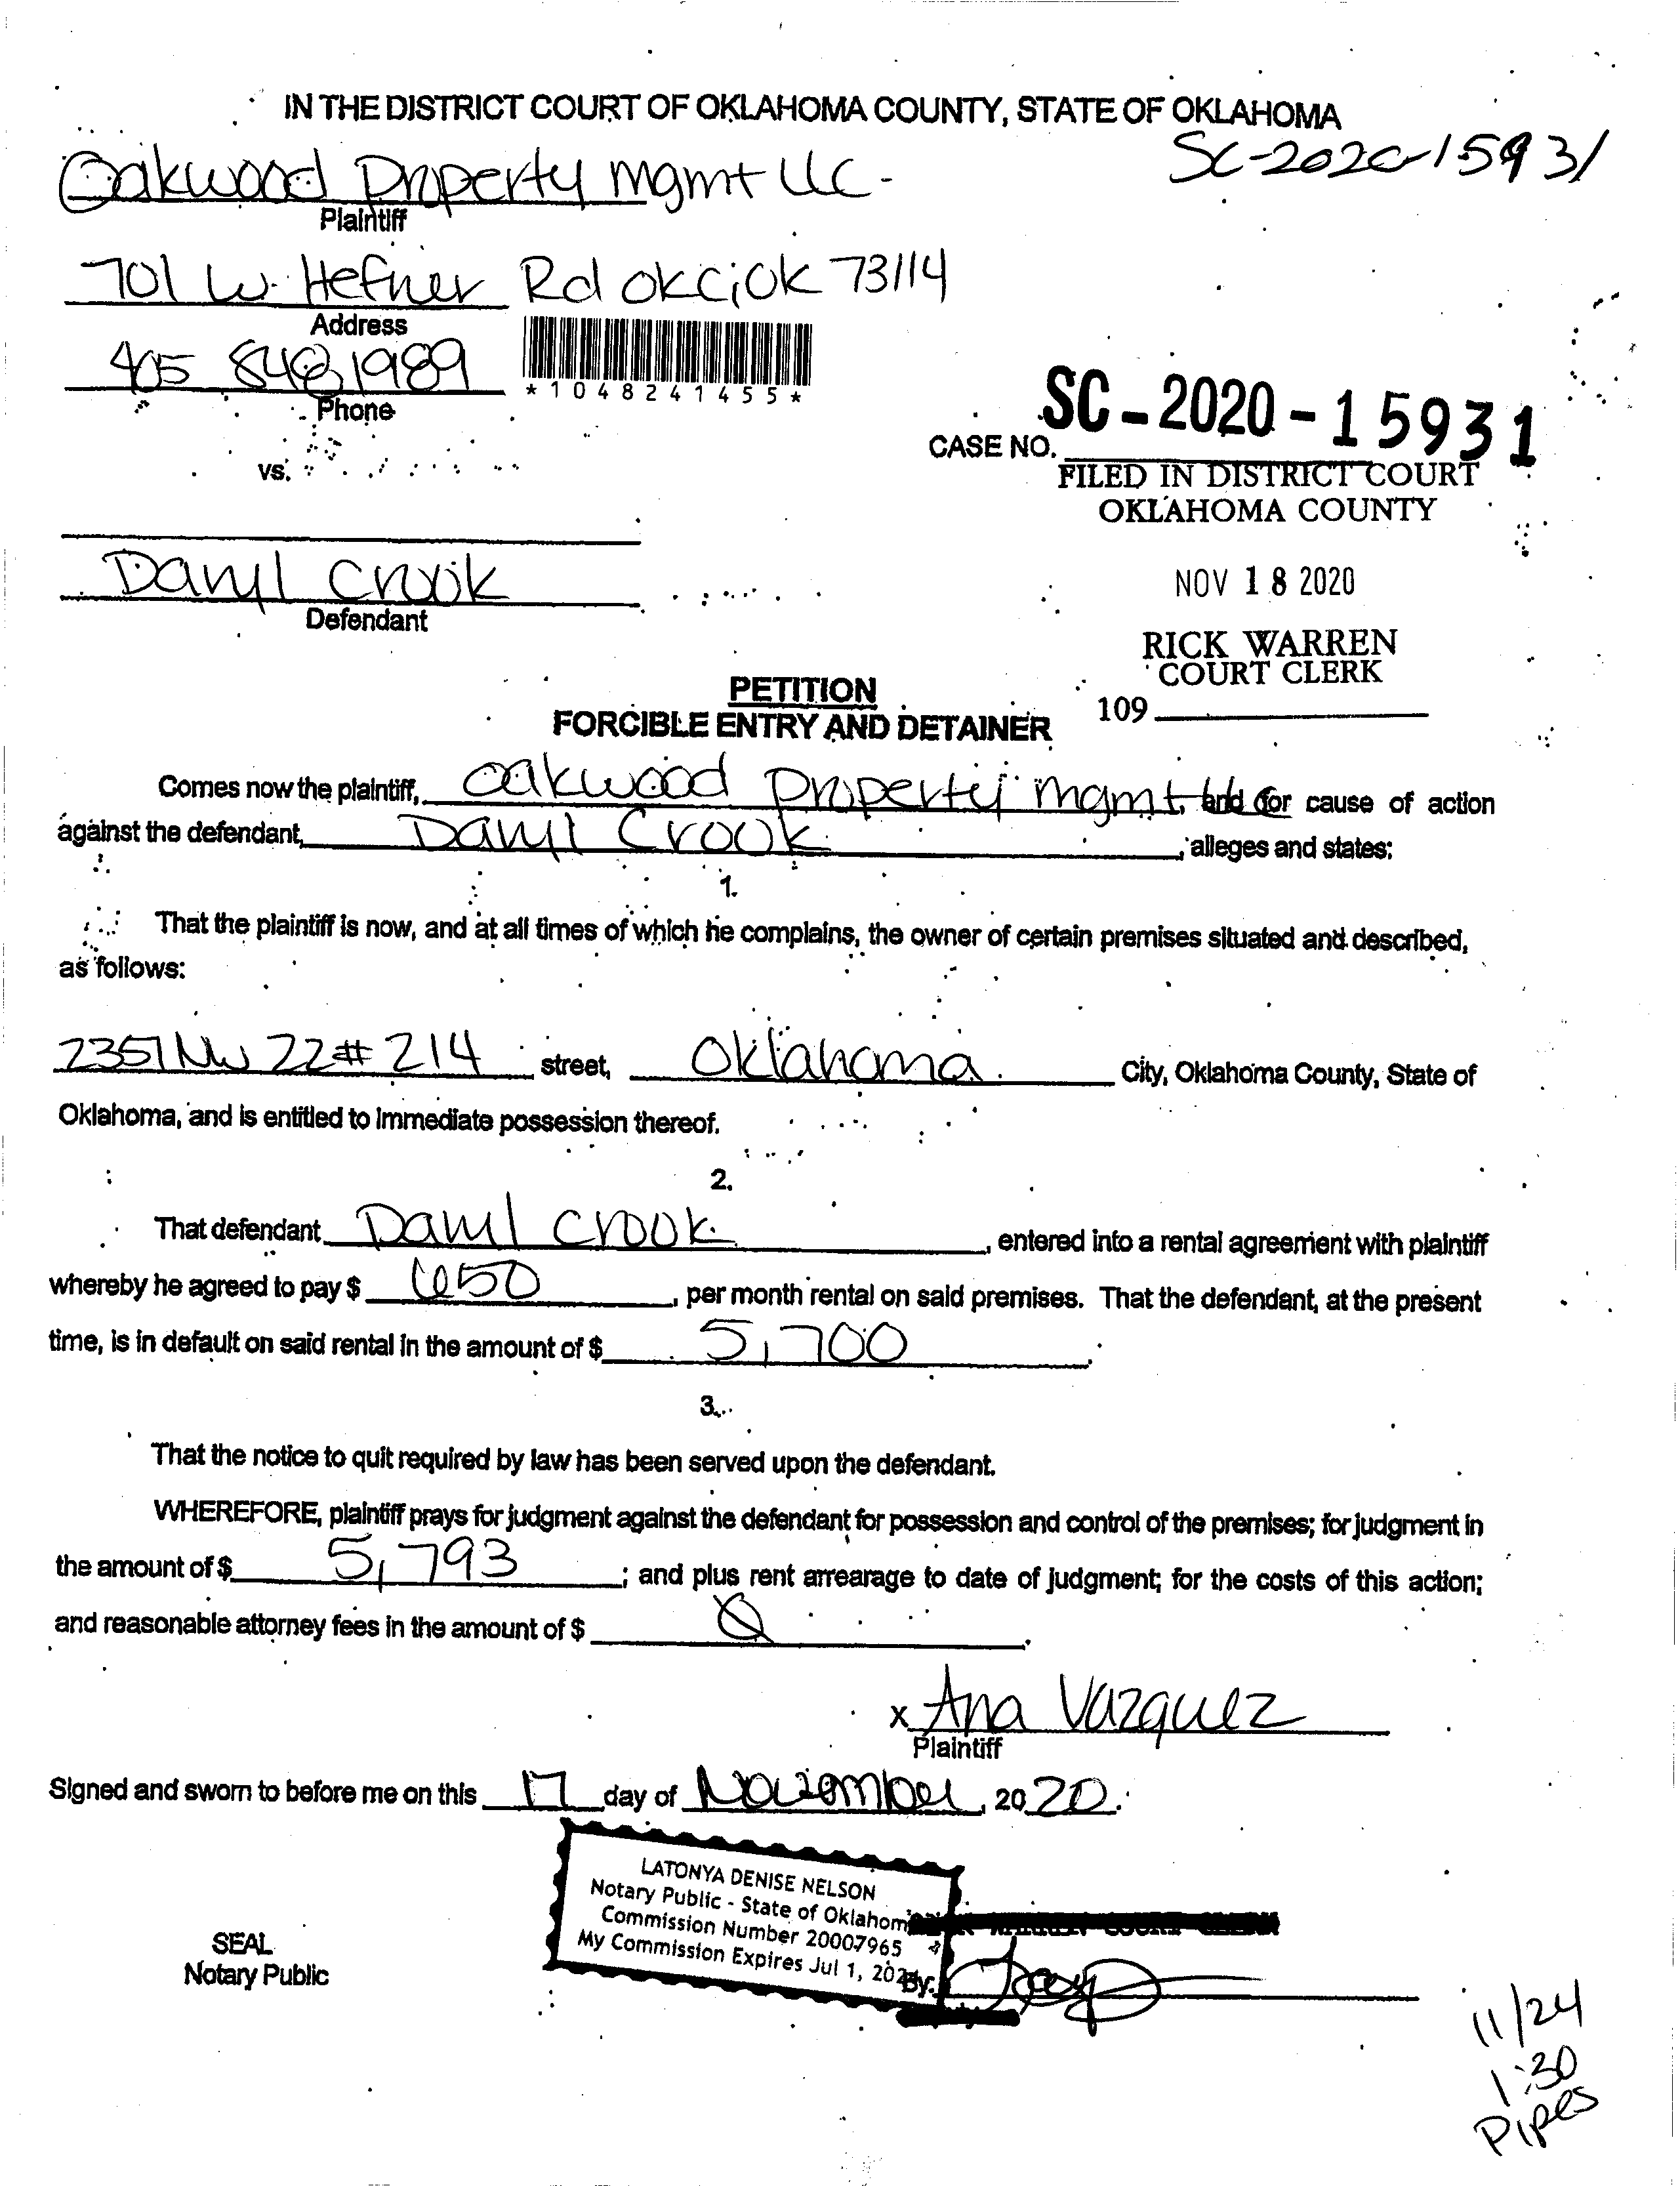 IN THE DISTRICT COURT OF OKLAHOMA COUNTY, STATE OF OKLAHOMA
SC-2020-15931
Oakwood Property mgmt LLC
Plaintiff
701 W. Hefner Rd OKC, OK 73114
Address
405 848 1989
Phone
*1048241455*
SC-2020-15931
CASE NO.
vs.
FILED IN DISTRICT COURT
OKLAHOMA COUNTY
NOV 18 2020
Daryl Crook
Defendant
RICK WARREN
COURT CLERK
109
PETITION
FORCIBLE ENTRY AND DETAINER
Comes now the plaintiff, Oakwood Property mgmt LLC and for cause of action
against the defendant, Daryl Crook, alleges and states:
1.
That the plaintiff is now, and at all times of which he complains, the owner of certain premises situated and described,
as follows:
2351 NW 22 # 214 street, Oklahoma City, Oklahoma County, State of
Oklahoma, and is entitled to immediate possession thereof.
2.
That defendant Daryl Crook, entered into a rental agreement with plaintiff
whereby he agreed to pay $ 650, per month rental on said premises. That the defendant, at the present
time, is in default on said rental in the amount of $ 5,700.
3.
That the notice to quit required by law has been served upon the defendant.
WHEREFORE, plaintiff prays for judgment against the defendant for possession and control of the premises; for judgment in
the amount of $ 5,793; and plus rent arrearage to date of judgment; for the costs of this action;
and reasonable attorney fees in the amount of $ Ø.
x Ana Vazquez
Plaintiff
Signed and sworn to before me on this 17 day of November, 2020.
LATONYA DENISE NELSON
Notary Public - State of Oklahoma
Commission Number 20007965
My Commission Expires Jul 1, 2024
SEAL
Notary Public
By:
11/24
1:30
Pipes